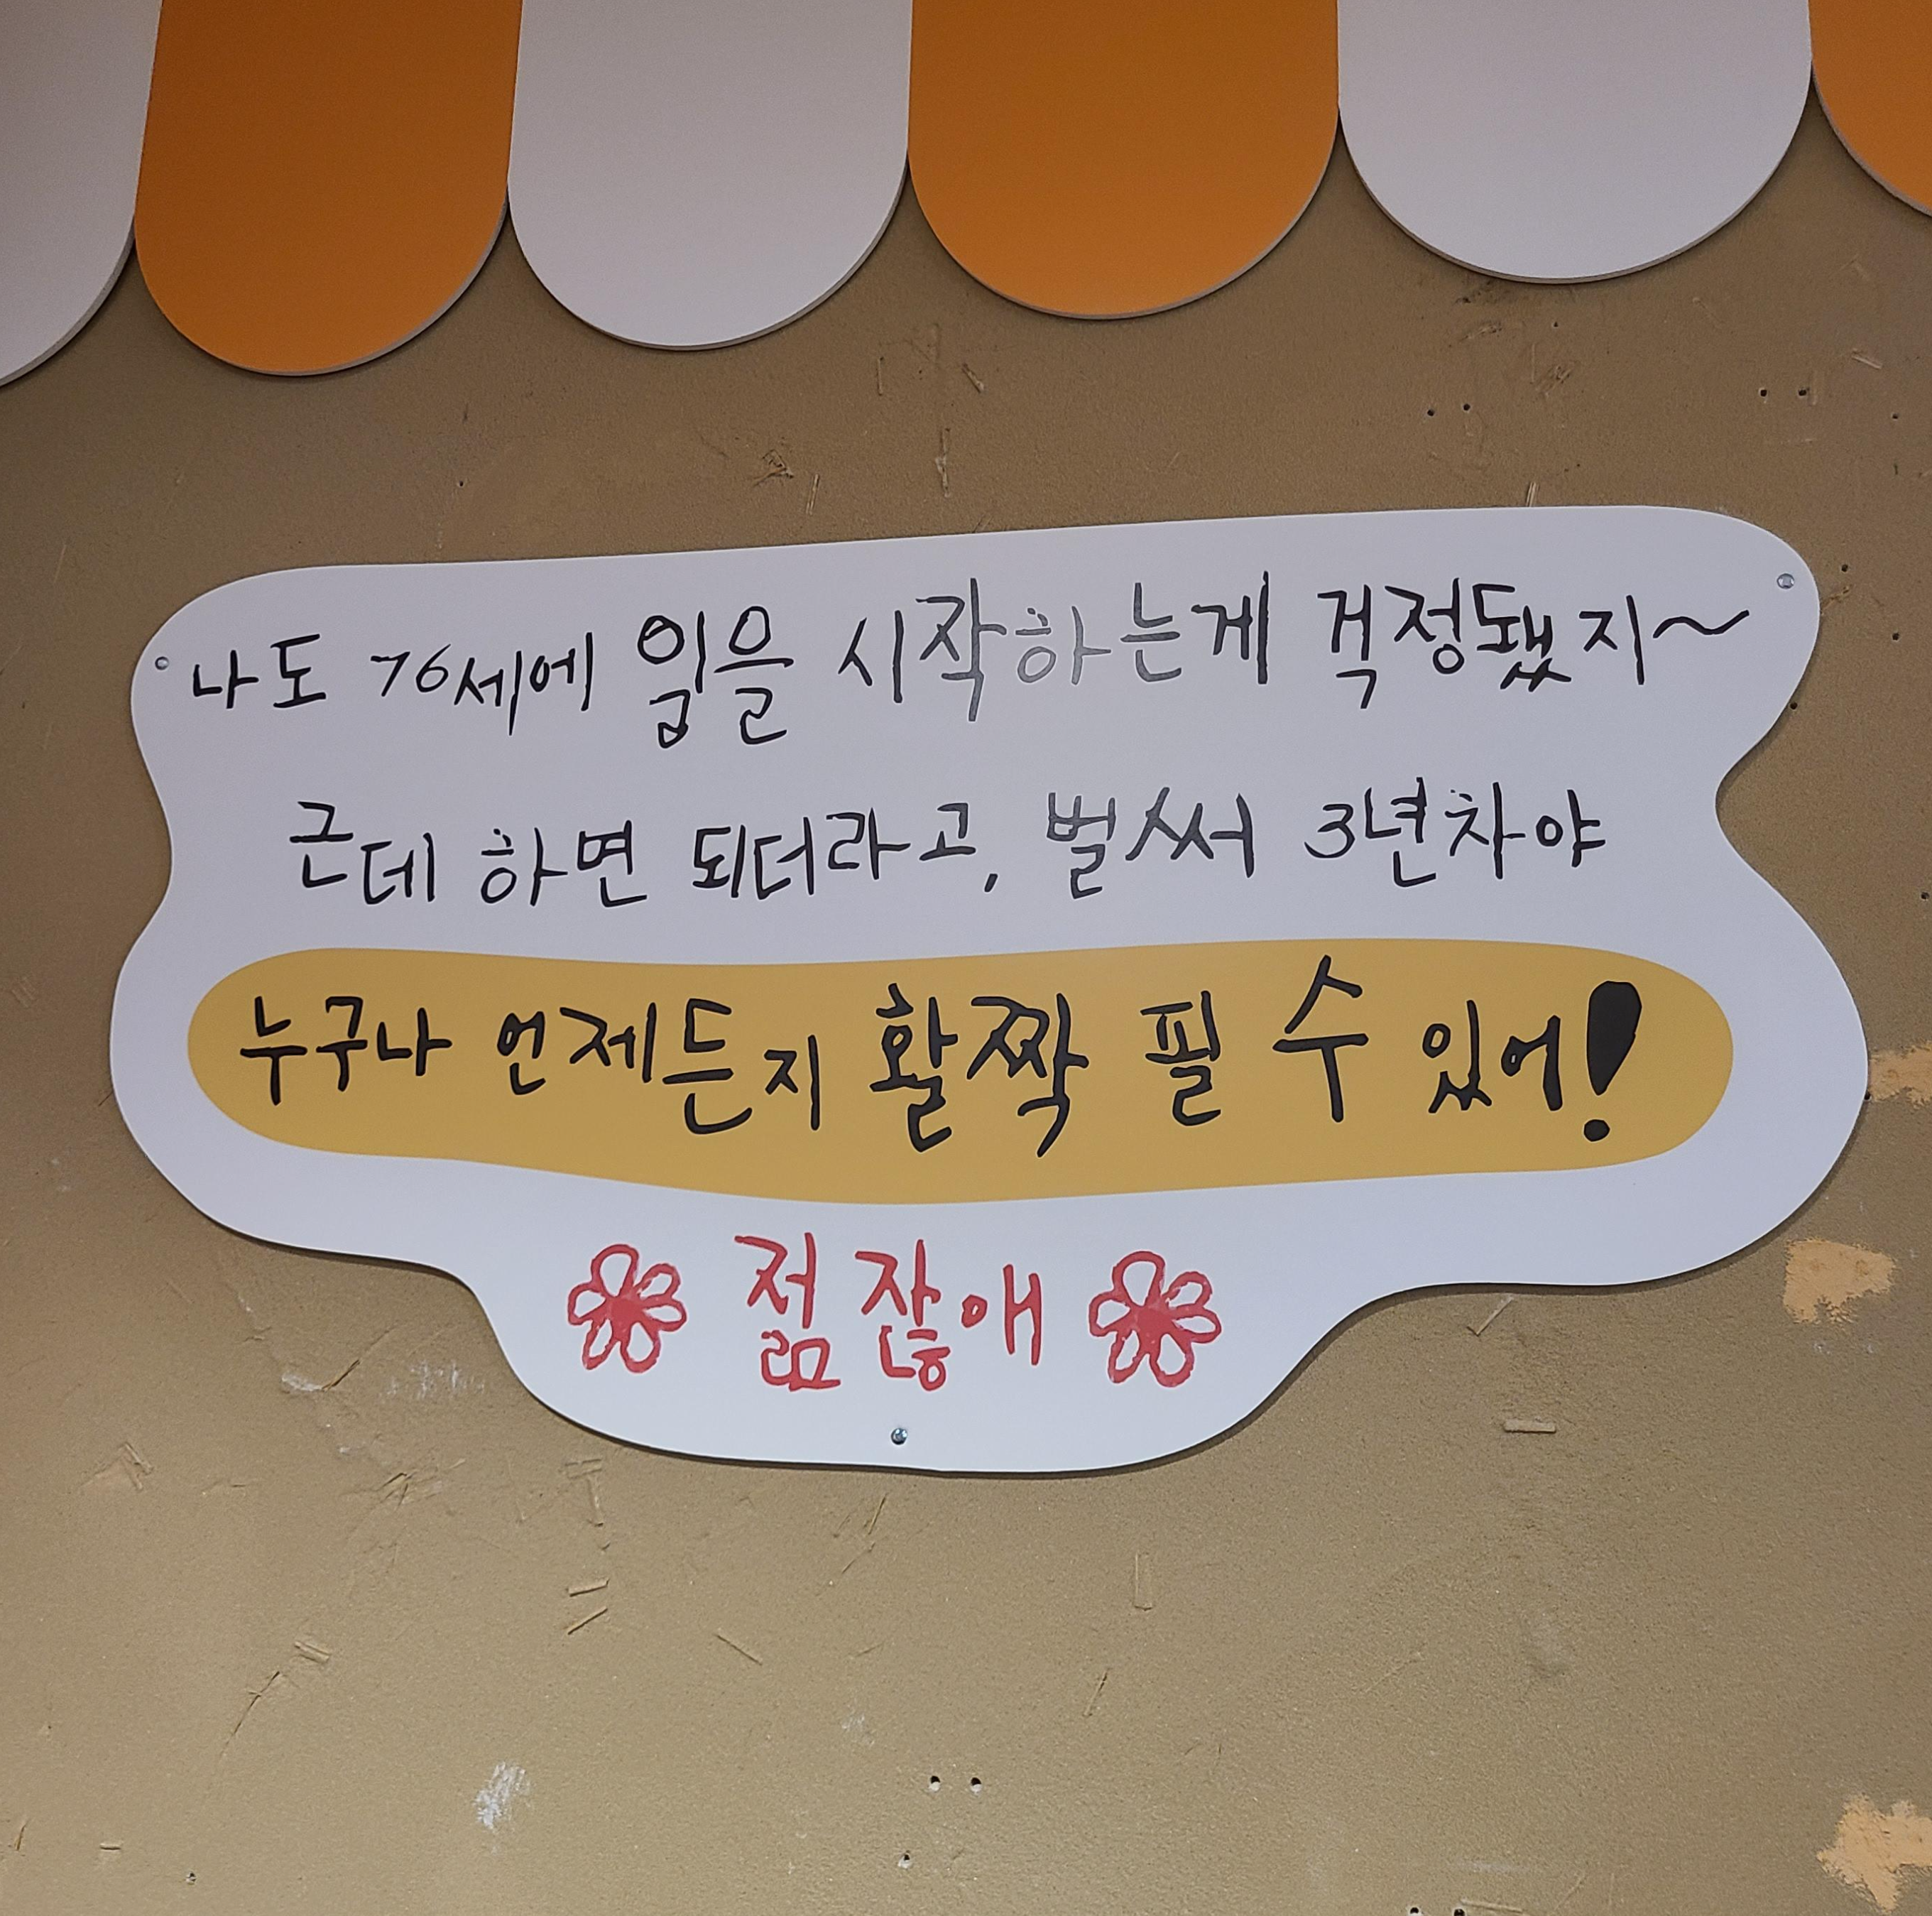 나도 76세에 일을 시작하는게 걱정됐지~
근데 하면 되더라고, 벌써 3년차야
누구나 언제든지 활짝 필 수 있어!
젊잖애